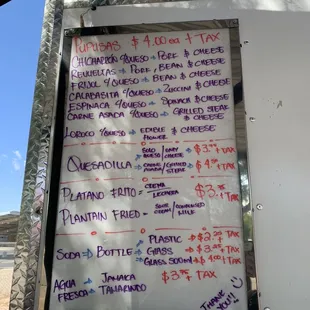 PUPUSAS $4.00 ea + TAX
CHICHARRÓN Y QUESO → PORK & CHEESE
REVUELTAS → PORK, BEAN & CHEESE
FRIJOL Y QUESO → BEAN & CHEESE
CALABASITA Y QUESO → ZUCCINI & CHEESE
ESPINACA Y QUESO → SPINACH & CHEESE
CARNE ASADA Y QUESO → GRILLED STEAK & CHEESE
LOROCO Y QUESO → EDIBLE FLOWER & CHEESE
QUESADILLA → SOLO QUESO / ONLY CHEESE → + TAX
→ CARNE ASADA / GRILLED STEAK → + TAX
PLATANO FRITO → CREMA LECHERA + TAX
PLANTAIN FRIED → SOUR CREAM / CONDENSED MILK
SODA → BOTTLE → PLASTIC → + TAX
GLASS → + TAX
GLASS 500ml → + TAX
AGUA FRESCA → JAMAICA + TAX
TAMARINDO
THANK YOU!!